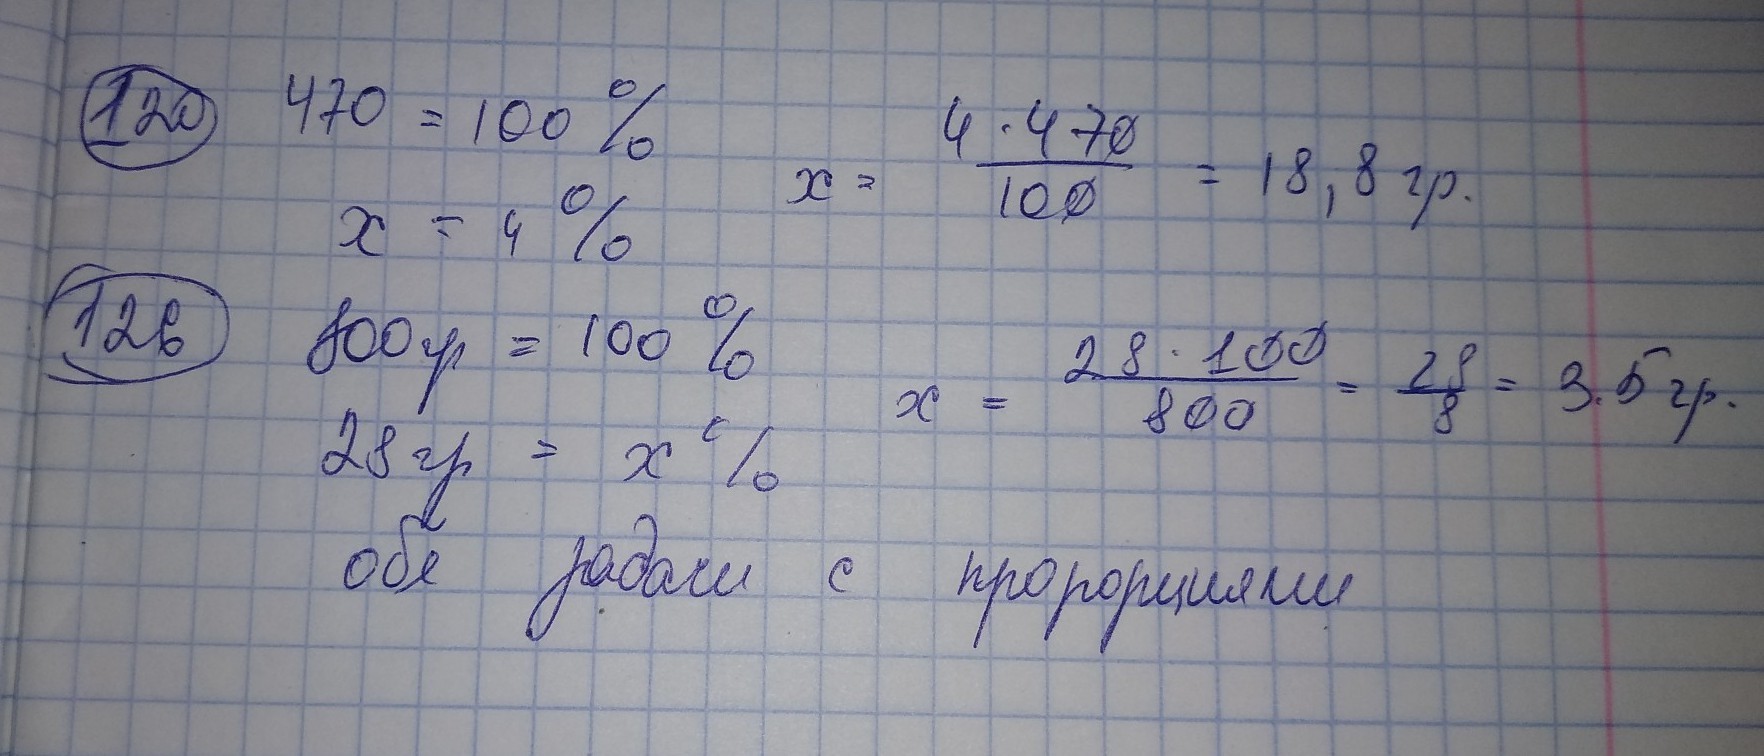 12а 470 = 100 % x = 4 · 470 / 100 = 18,8 гр.
x = 4 %
12в 800гр = 100 % x = 28 · 100 / 800 = 28 / 8 = 3.5 гр.
28 гр = x %
обе задачи с пропорциями